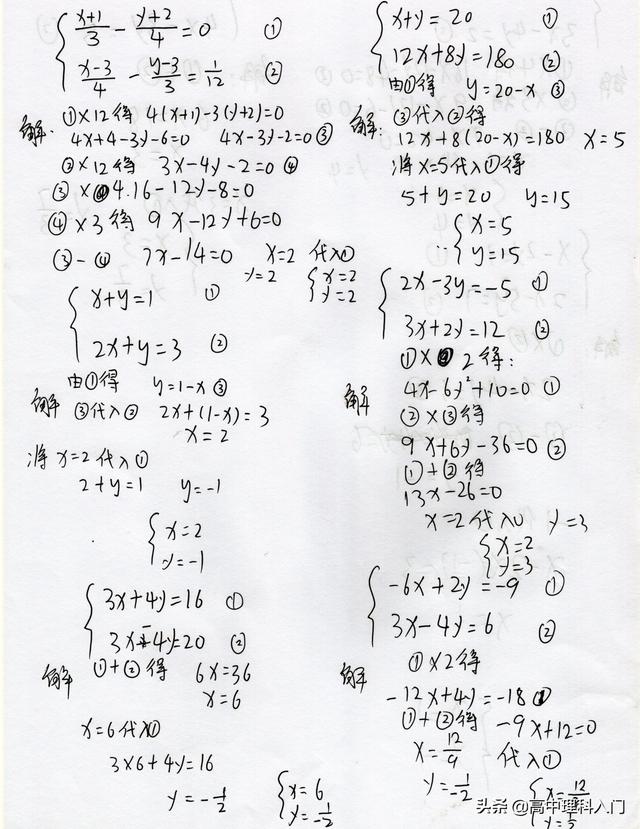 (x+1)/3 - (y+2)/4 = 0 ①
(x-3)/4 - (y-3)/3 = 1/12 ②
解. ①×12得 4(x+1)-3(y+2)=0
4x+4-3y-6=0 4x-3y-2=0 ③
②×12得 3x-4y-2=0 ④
③× 4.16-12y-8=0
④×3得 9x-12y+6=0
③-④ 7x-14=0 x=2 代入①
y=2 { x=2
y=2
x+y=1 ①
2x+y=3 ②
由①得 y=1-x ③
解 ③代入② 2x+(1-x)=3
x=2
将 x=2代入①
2+y=1 y=-1
{ x=2
y=-1
3x+4y=16 ①
3x-4y=20 ②
解 ①+②得 6x=36
x=6
x=6代入①
3×6+4y=16
y=-1/2 { x=6
y=-1/2
x+y=20 ①
12x+8y=180 ②
由①得 y=20-x ③
解: ③代入②得
12x+8(20-x)=180 x=5
将x=5代入①得
5+y=20 y=15
{ x=5
∴ y=15
2x-3y=-5 ①
3x+2y=12 ②
①× 2得:
解 4x-6y²+10=0 ①
②×③得
9x+6y-36=0 ②
①+②得
13x-26=0
x=2代入① y=3
{ x=2
y=3
-6x+2y=-9 ①
3x-4y=6 ②
解 ①×2得
-12x+4y=-18 ①
①+②得 -9x+12=0
x=12/9 代入①
y=-1/2 { x=12
y=
头条 @高中理科入门